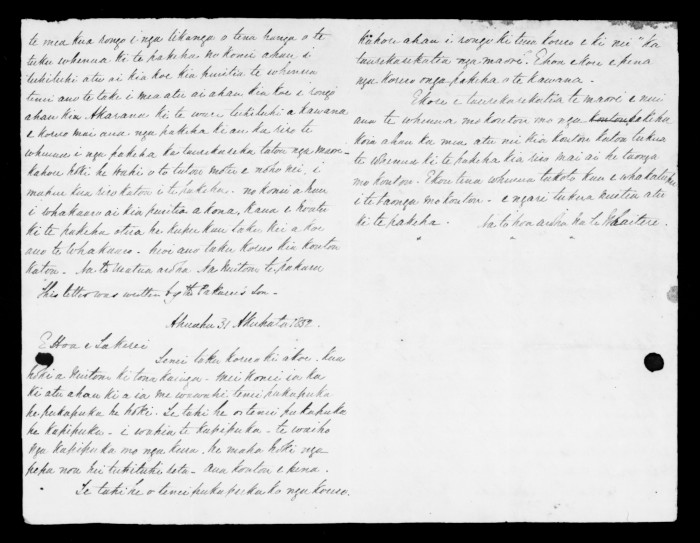 te mea kua rongo i nga tikanga o tena tonga o te
tuku whenua ki te pakeha no konei ahau i
tuhituhi atu ai kia koe kia puritia te whenua
tenei ano te take i mea atu ai ahau kia koe e rongo
ahau kia Akarana ki te ware tuhituhi a kawana
e korero mai ana nga pakeha ki au ka riro te
whenua i nga pakeha ka taurekareka taton nga maori
kahore hoki he wahi o to tatou motu e noho nei, i
mahue kua riro katoa i te pakeha. no konei ahau
i whakaaro ai kia puritia a kona, kaua e hoatu
ki te pakeha otira he kupu kau taku kei a koe
ano te whakaaro. heoi ano taku korero kia koutou
katoa. Na to Matua aroha Na Wiitomi te pakaru
This letter was written by the Pakaru's Son.
Ahuahu 31 Akuhata 1850.
E Hoa e Ta Kerei
Tenei taku korero ki a koe. Kua
hoki a Wiitomi ki tona kainga. Mei konei ia ka
ki atu ahau ki a ia me wawahi tenei pukapuka
he pukapuka he hoki. Te tahi he o tenei pukapuka
he kapipuka. i wahia te kapipuka. te waiho
nga kapipuka mo nga kena. he maha hoki nga
pepa nou hei tuhituhi rota. aua koutou e pena.
Te tahi he o tenei pukapuka ko nga korero.
Kahore ahau i rongo ki tena korero e ki nei "Ka
taurekarekatia nga maori. Ehou ekore e pena
nga korero o nga pakeha o te kawana.
Ekore e taurekarekatia te maori e nui
ano te whenua mo koutou mo nga pakeha
koia ahau ka mea atu nei kia koutou katoa tukua
te Whenua ki te pakeha kia riro mai ai he taonga
mo koutou. Ehou tena whenua takoto kau e whakatupu
i te taonga mo koutou. engari tukua katia atu
ki te pakeha. Na to hoa aroha Na Te Waitere.